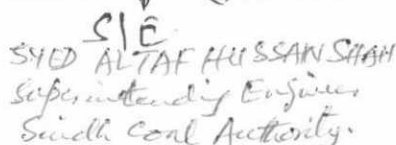 S/E
SYED ALTAF HUSSAIN SHAH
Superintending Engineer
Sindh Coal Authority.